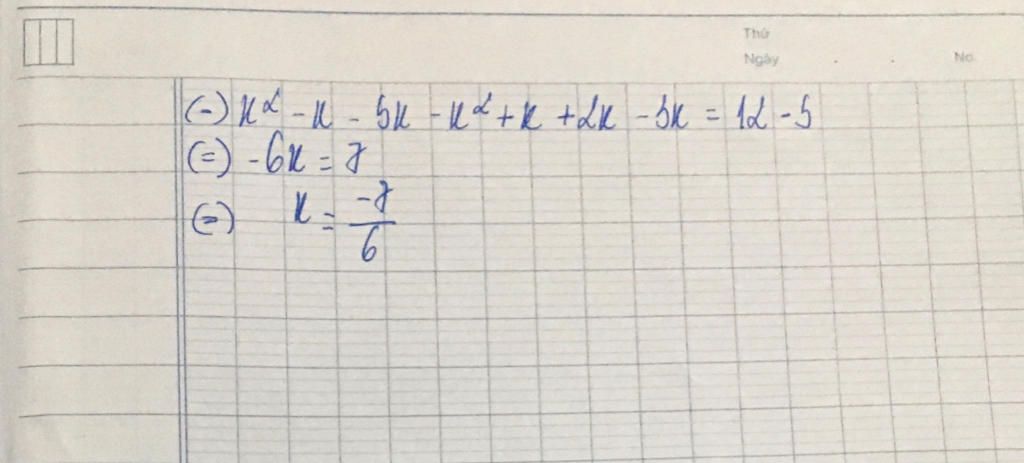 Thứ
Ngày
No.
(=) x² - x - 5x - x² + x + 2x - 3x = 12 - 5
(=) -6x = 7
(=) x = -7/6